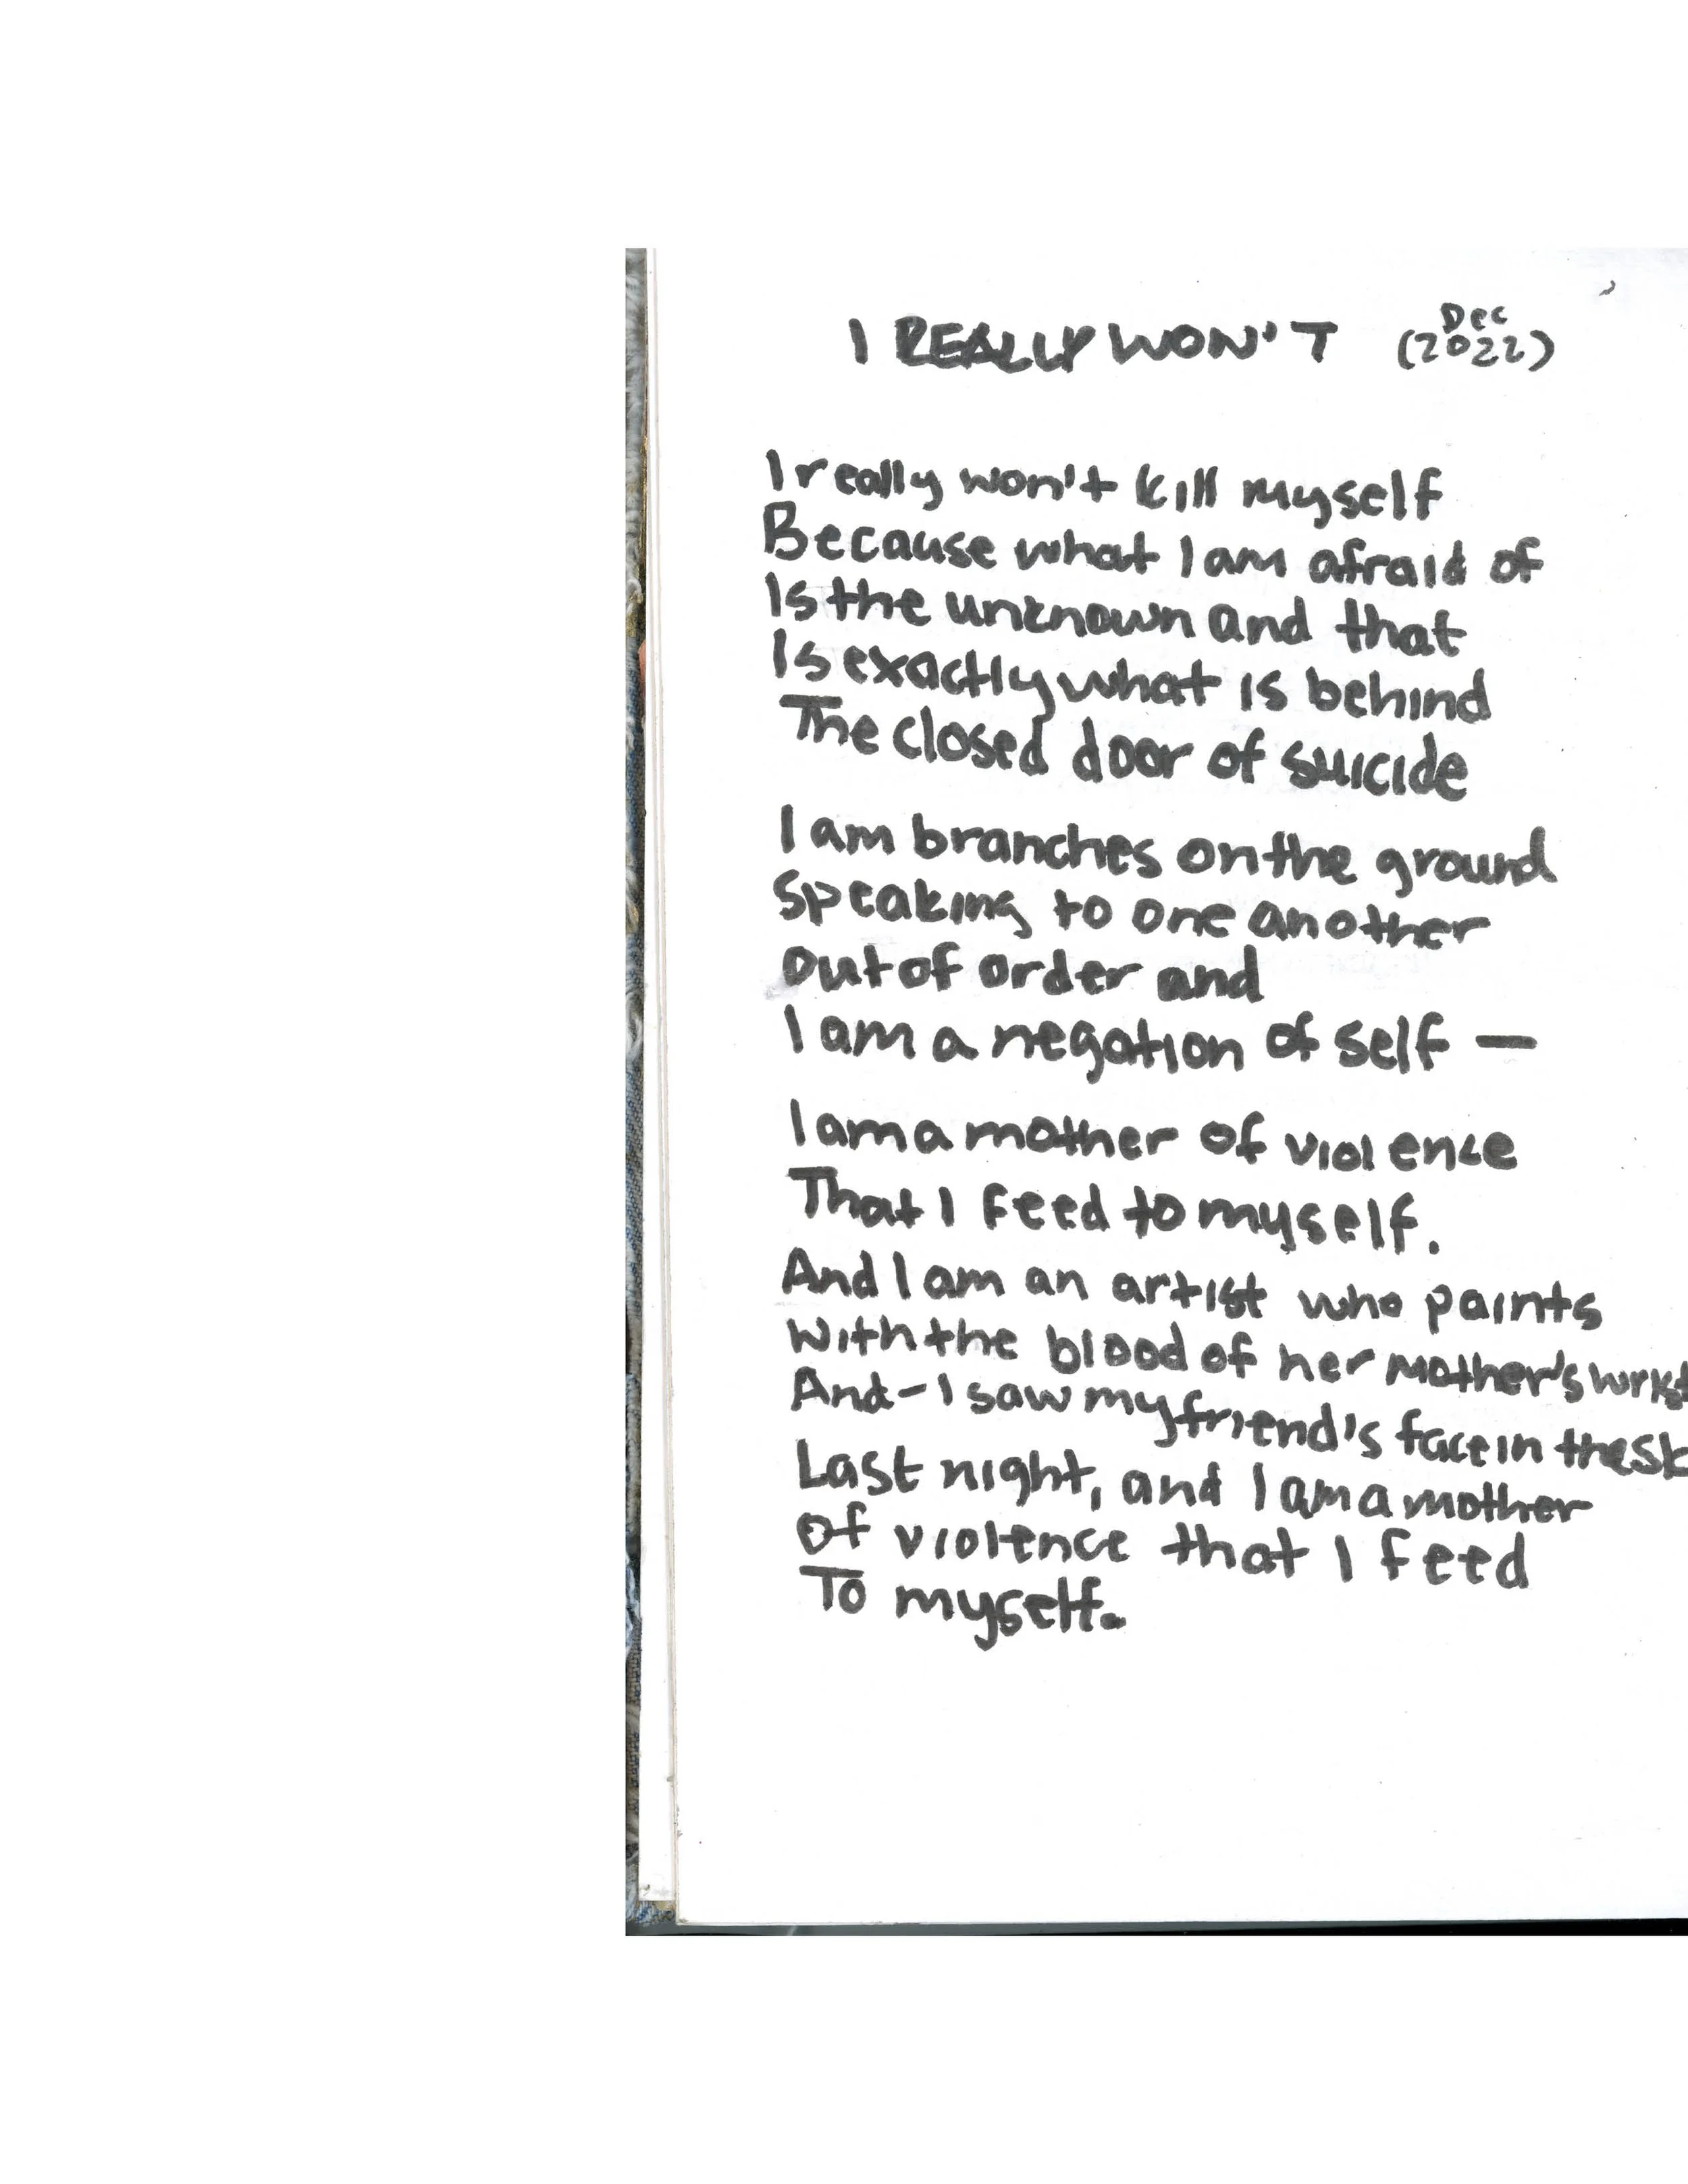 I REALLY WON'T (Dec 2022)
I really won't kill myself
Because what I am afraid of
Is the unknown and that
Is exactly what is behind
The closed door of suicide
I am branches on the ground
Speaking to one another
Out of order and
I am a negation of self —
I am a mother of violence
That I feed to myself.
And I am an artist who paints
With the blood of her mother's wrist
And - I saw my friend's face in the
Last night, and I am a mother
Of violence that I feed
To myself.